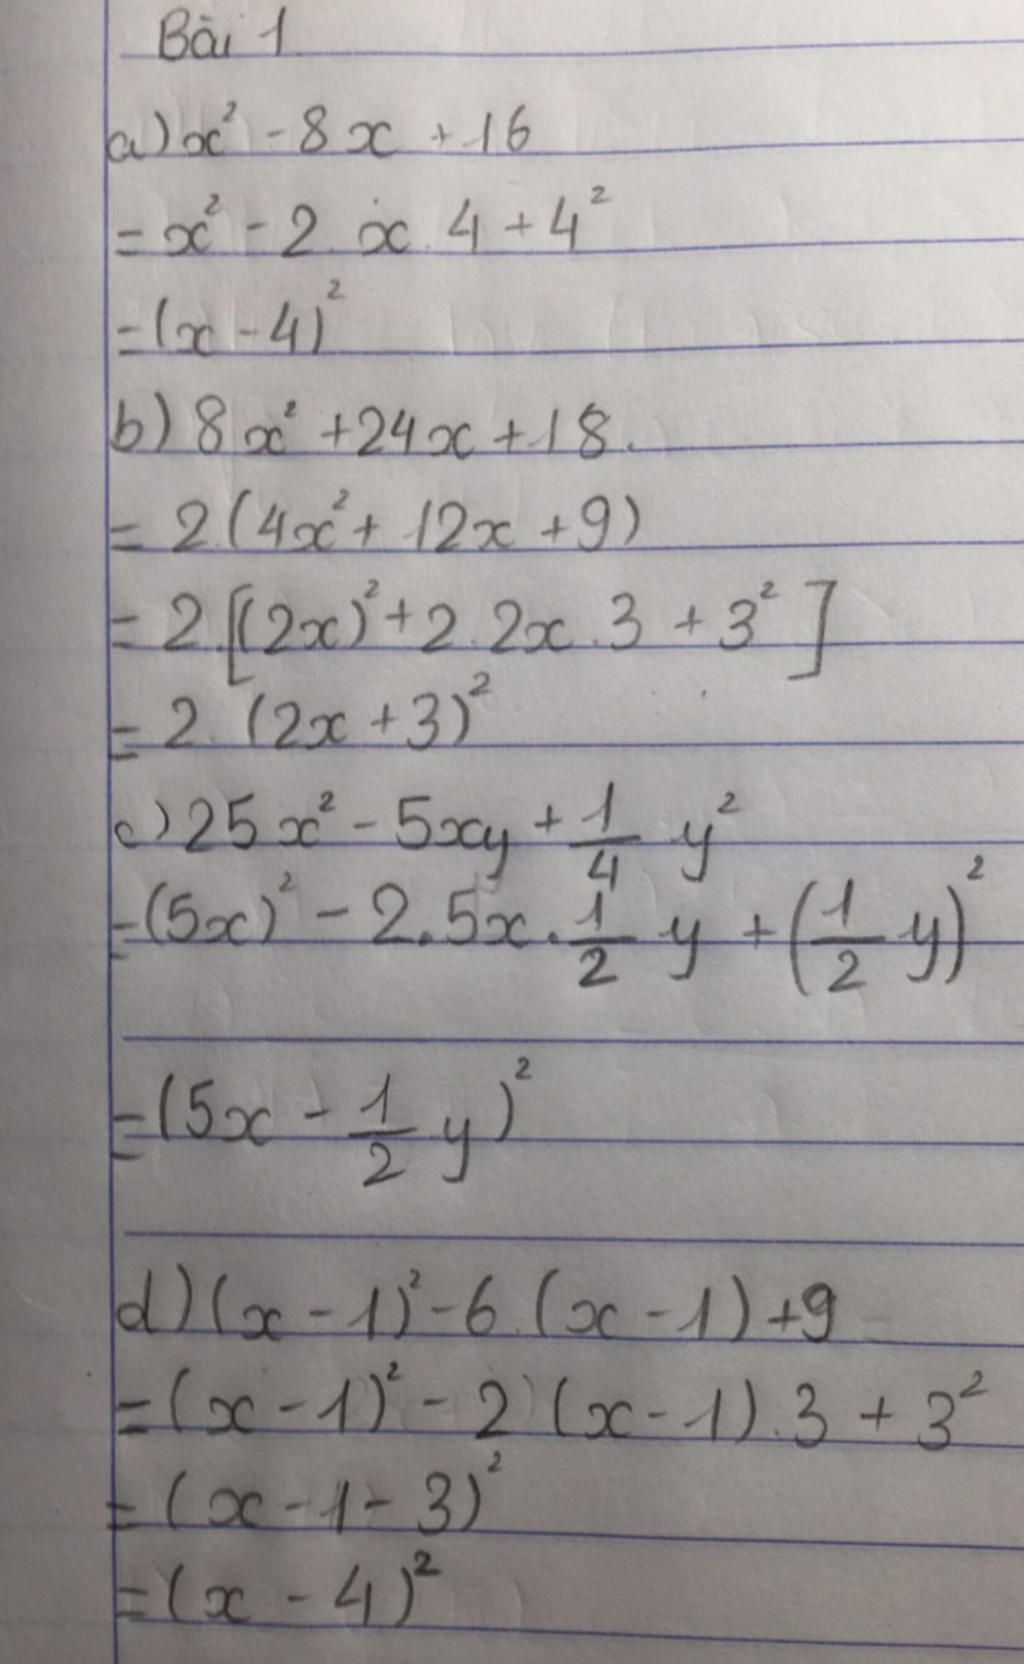 Bài 1
a) x² - 8x + 16
= x² - 2.x.4 + 4²
= (x - 4)²
b) 8x² + 24x + 18.
= 2.(4x² + 12x + 9)
= 2.[(2x)² + 2.2x.3 + 3²]
= 2.(2x + 3)²
c) 25x² - 5xy + 1/4 y²
= (5x)² - 2.5x.1/2 y + (1/2 y)²
= (5x - 1/2 y)²
d) (x - 1)² - 6.(x - 1) + 9
= (x - 1)² - 2.(x - 1).3 + 3²
= (x - 1 - 3)²
= (x - 4)²